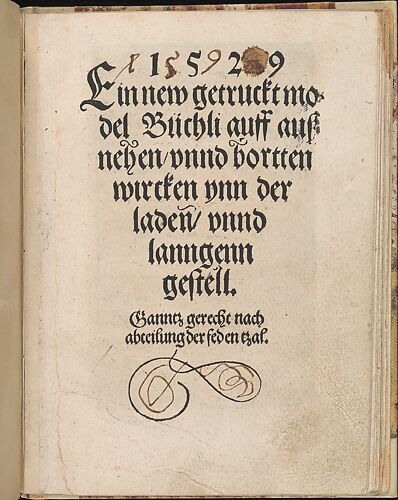 1 1 5 5 9 2 9
Ein new getruckt mo-
del Büchli auff auß-
nehen/ vnnd bortten
wircken ynn der
laden̄/ vnnd
lanngenn
gestell.
Ganntz gerecht nach
abteilung der feden tzal.